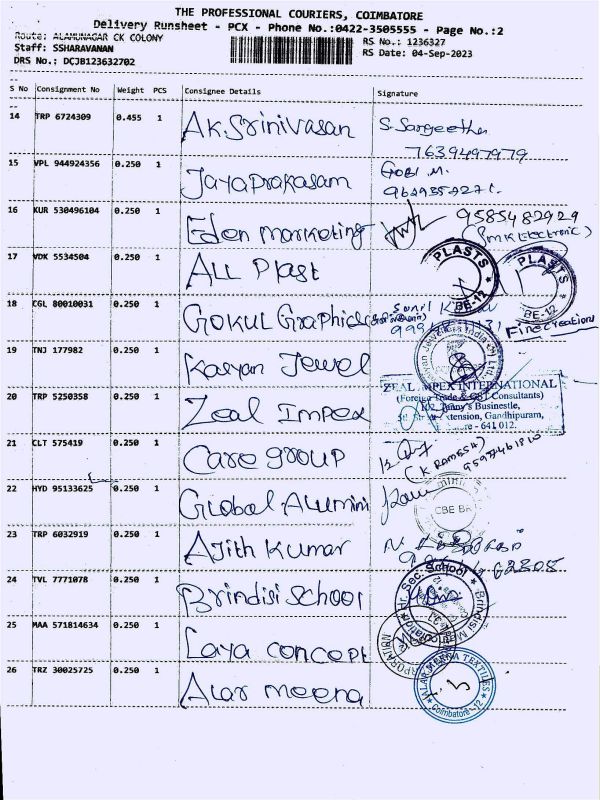 THE PROFESSIONAL COURIERS, COIMBATORE
Delivery Runsheet - PCX - Phone No.:0422-3505555 - Page No.:2
Route: ALAMUNAGAR CK COLONY
RS No.: 1236327
Staff: SSHARAVANAN
RS Date: 04-Sep-2023
DRS No.: DCJB123632702
S No Consignment No Weight PCS Consignee Details Signature
14 TRP 6724309 0.455 1 A.K.Srinivasan S. Sangeetha
7639497979
15 VPL 944924356 0.250 1 Jayaprakasam GOBI M.
16 KUR 530496104 0.250 1 Eden marketing 9585482929
(SMK Electronic)
17 VDK 5534504 0.250 1 ALL Plast
PLASTS
CBE-12
PLASTS
CBE-12
18 CGL 80010031 0.250 1 GOKUL Graphics Sunil
Fine Creations
19 TNJ 177982 0.250 1 Kalyan Jewel
Kalyan Jewellers India
20 TRP 5250358 0.250 1 Zeal Impex
ZEAL IMPEX INTERNATIONAL
(Foreign Trade & GST Consultants)
102, Businestle,
Extension, Gandhipuram,
- 641 012.
21 CLT 575419 0.250 1 Care group
(K RAMESH)
22 HYD 95133625 0.250 1 Global Alumini
CBE
23 TRP 6032919 0.250 1 Ajith Kumar
24 TVL 7771078 0.250 1 Brindisi School
Sec. School
25 MAA 571814634 0.250 1 Laya concept
26 TRZ 30025725 0.250 1 Alar meena
ALAR MEENA TEXTILES
Coimbatore - 12